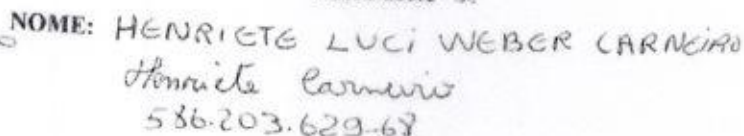 NOME: HENRIETE LUCI WEBER CARNEIRO
Henriete Carneiro
586.203.629-68